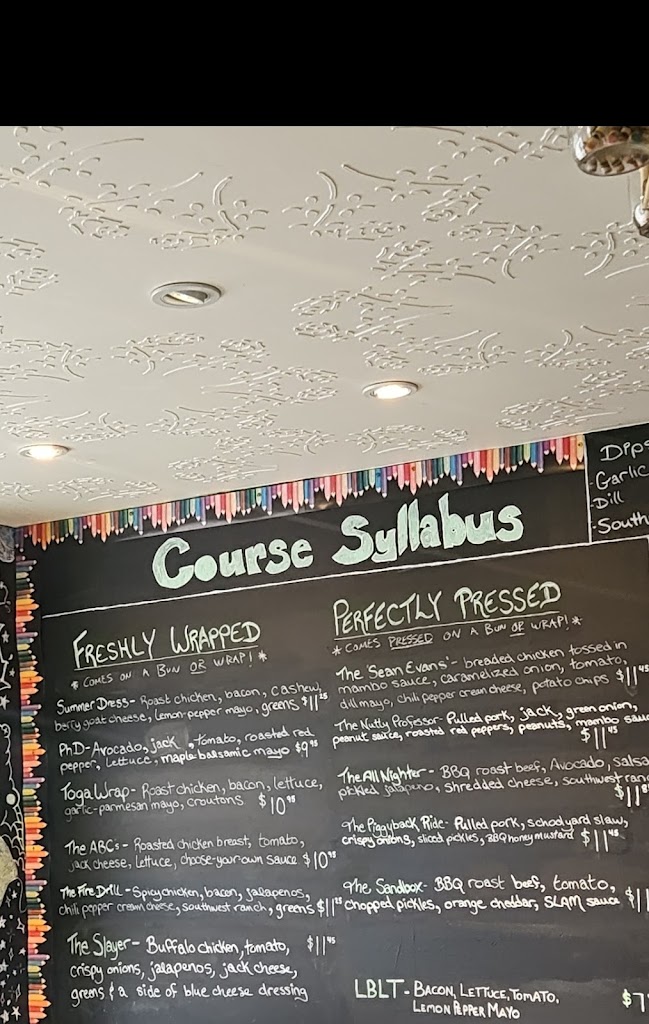 Course Syllabus
Dips
-Garlic
-Dill
-South
FRESHLY WRAPPED
* COMES ON A BUN OR WRAP! *
Summer Dress- Roast chicken, bacon, cashew,
berry goat cheese, lemon-pepper mayo, greens $11
PhD-Avocado, jack, tomato, roasted red
pepper, lettuce, maple-balsamic mayo $9
Toga Wrap- Roast chicken, bacon, lettuce,
garlic-parmesan mayo, croutons $10
The ABC's- Roasted chicken breast, tomato,
jack cheese, lettuce, choose-your-own sauce $10
The Fire Drill-Spicy chicken, bacon, jalapenos,
chili pepper cream cheese, southwest ranch, greens $11
The Slayer- Buffalo chicken, tomato, $11 45
crispy onions, jalapenos, jack cheese,
greens & a side of blue cheese dressing
PERFECTLY PRESSED
* COMES PRESSED ON A BUN OR WRAP! *
The 'Sean Evans'- breaded chicken tossed in
mambo sauce, caramelized onion, tomato,
dill mayo, chili pepper cream cheese, potato chips $11 45
The Nutty Professor- Pulled pork, jack, green onion,
peanut sauce, roasted red peppers, peanuts, mambo sauc
$11 45
The All Nighter- BBQ roast beef, Avocado, salsa
pickled jalapeno, shredded cheese, southwest ran
$11
The Piggyback Ride- Pulled pork, schoolyard slaw,
crispy onions, sliced pickles, BBQ honey mustard $11 45
The Sandbox- BBQ roast beef, tomato,
chopped pickles, orange cheddar, SLAM sauce $11
LBLT- BACON, LETTUCE, TOMATO,
LEMON PEPPER MAYO $7